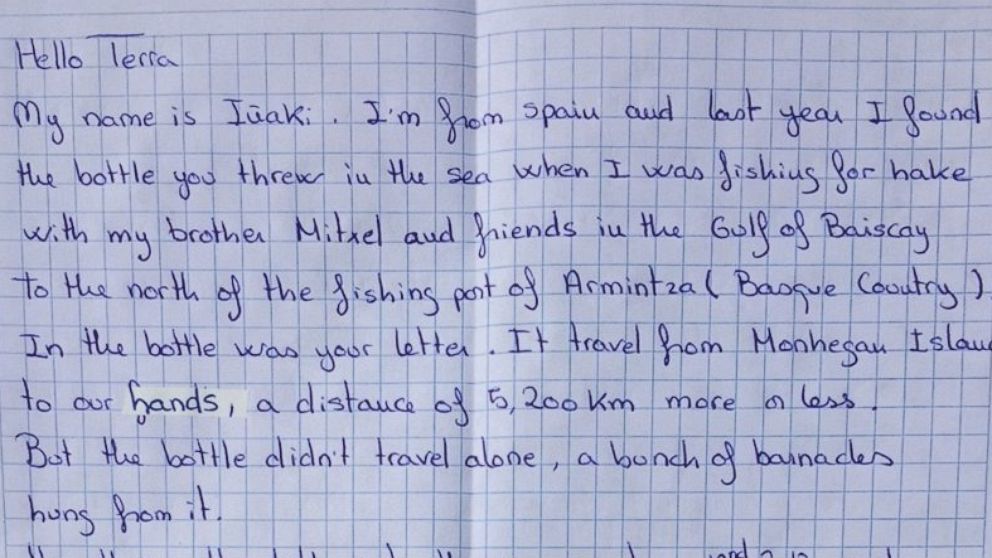 Hello Terra
My name is Iñaki. I'm from spain and last year I found
the bottle you threw in the sea when I was fishing for hake
with my brother Mitxel and friends in the Gulf of Baiscay
to the north of the fishing port of Armintza (Basque Country)
In the bottle was your letter. It travel from Monhegan Islan
to our hands, a distance of 5,200 Km more or less.
But the bottle didn't travel alone, a bunch of barnacles
hung from it.